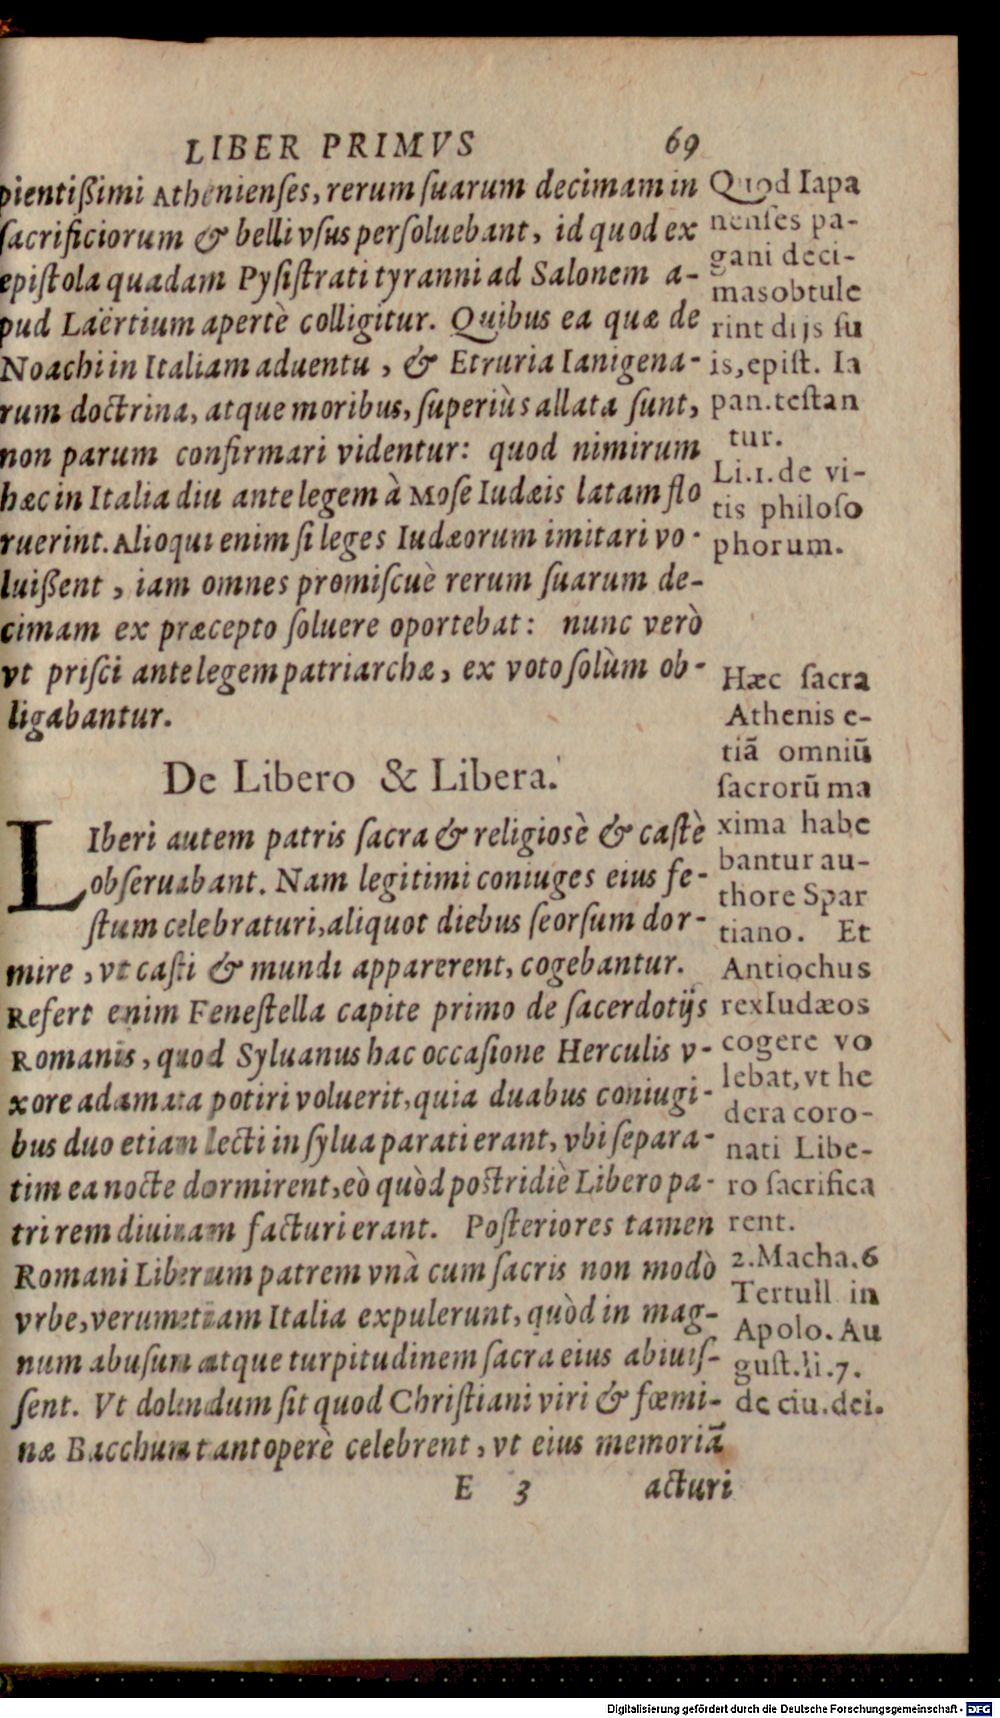 LIBER PRIMVS 69
pientißimi Athenienses, rerum suarum decimam in
sacrificiorum & belli vsus persoluebant, id quod ex
epistola quadam Pysistrati tyranni ad Salonem a-
pud Laërtium apertè colligitur. Quibus ea quæ de
Noachi in Italiam aduentu, & Etruria Ianigena-
rum doctrina, atque moribus, superiùs allata sunt,
non parum confirmari videntur: quod nimirum
hæc in Italia diu ante legem à Mose Iudæis latam flo
ruerint. Alioqui enim si leges Iudæorum imitari vo-
luißent, iam omnes promiscuè rerum suarum de-
cimam ex præcepto soluere oportebat: nunc verò
vt prisci ante legem patriarchæ, ex voto solùm ob-
ligabantur.
Quod Iapa
nenses pa-
gani deci-
mas obtule
rint dijs su
is, epist. Ia
pan. testan
tur.
Li.1. de vi-
tis philoso
phorum.
De Libero & Libera.
LIberi autem patris sacra & religiosè & castè
obseruabant. Nam legitimi coniuges eius fe-
stum celebraturi, aliquot diebus seorsum dor-
mire, vt casti & mundi apparerent, cogebantur.
Refert enim Fenestella capite primo de sacerdotijs
Romanis, quod Syluanus hac occasione Herculis v-
xore adamata potiri voluerit, quia duabus coniugi-
bus duo etiam lecti in sylua parati erant, vbi separa-
tim ea nocte dormirent, eò quòd postridiè Libero pa-
tri rem diuinam facturi erant. Posteriores tamen
Romani Liberum patrem vnà cum sacris non modò
vrbe, verumetiam Italia expulerunt, quòd in mag-
num abusum atque turpitudinem sacra eius abiuis-
sent. Vt dolendum sit quod Christiani viri & fœmi-
næ Bacchum tantoperè celebrent, vt eius memoriã
Hæc sacra
Athenis e-
tiã omniũ
sacrorũ ma
xima habe
bantur au-
thore Spar
tiano. Et
Antiochus
rex Iudæos
cogere vo
lebat, vt he
dera coro-
nati Libe-
ro sacrifica
rent.
2. Macha. 6
Tertull in
Apolo. Au
gust. li. 7.
de ciu. dei.
E 3 acturi
Digitalisierung gefördert durch die Deutsche Forschungsgemeinschaft - DFG